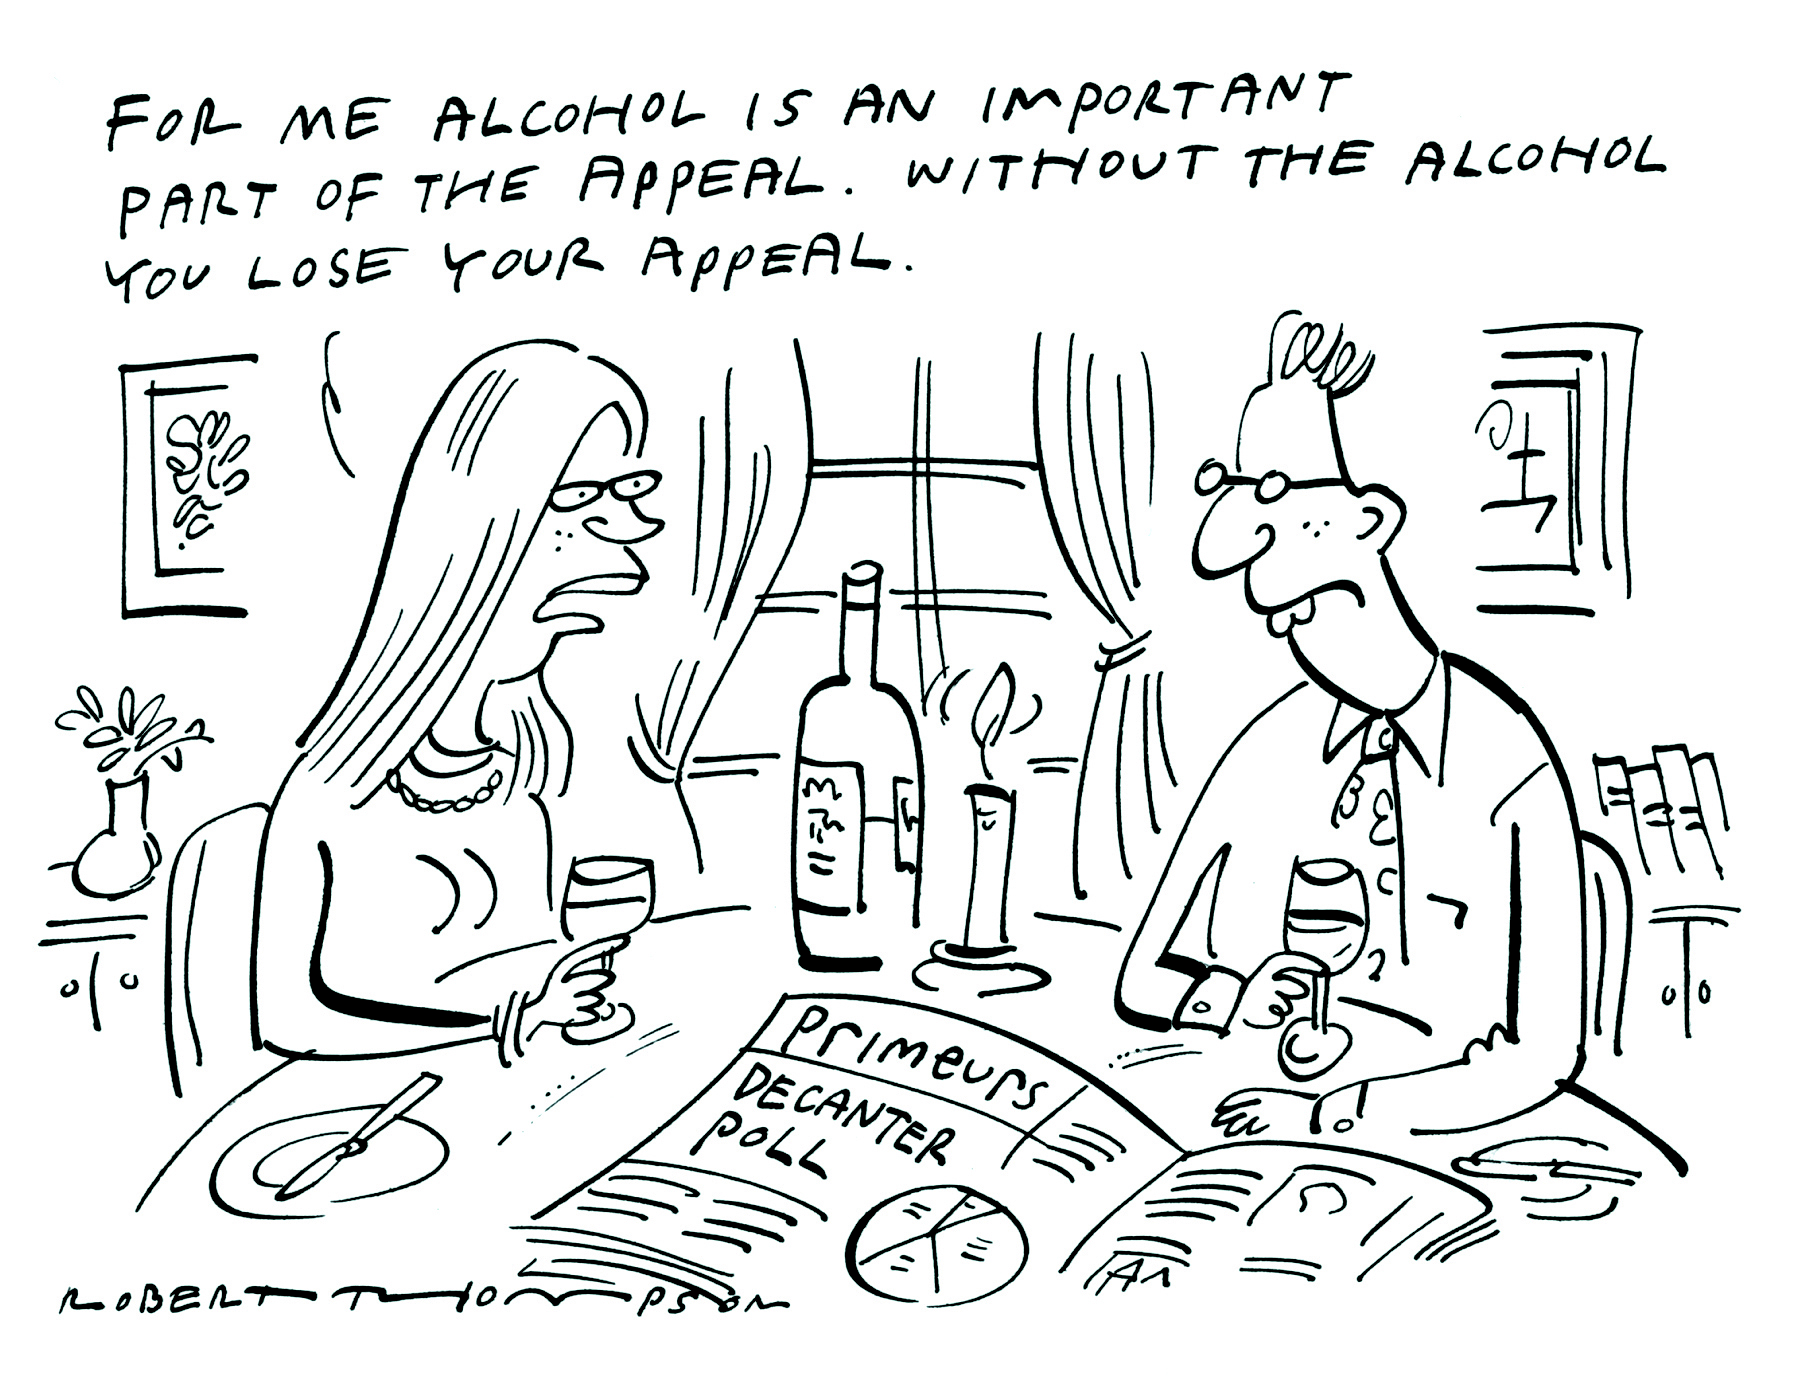 FOR ME ALCOHOL IS AN IMPORTANT
PART OF THE APPEAL. WITHOUT THE ALCOHOL
YOU LOSE YOUR APPEAL.
PRIMEURS
DECANTER
POLL
ROBERT THOMPSON